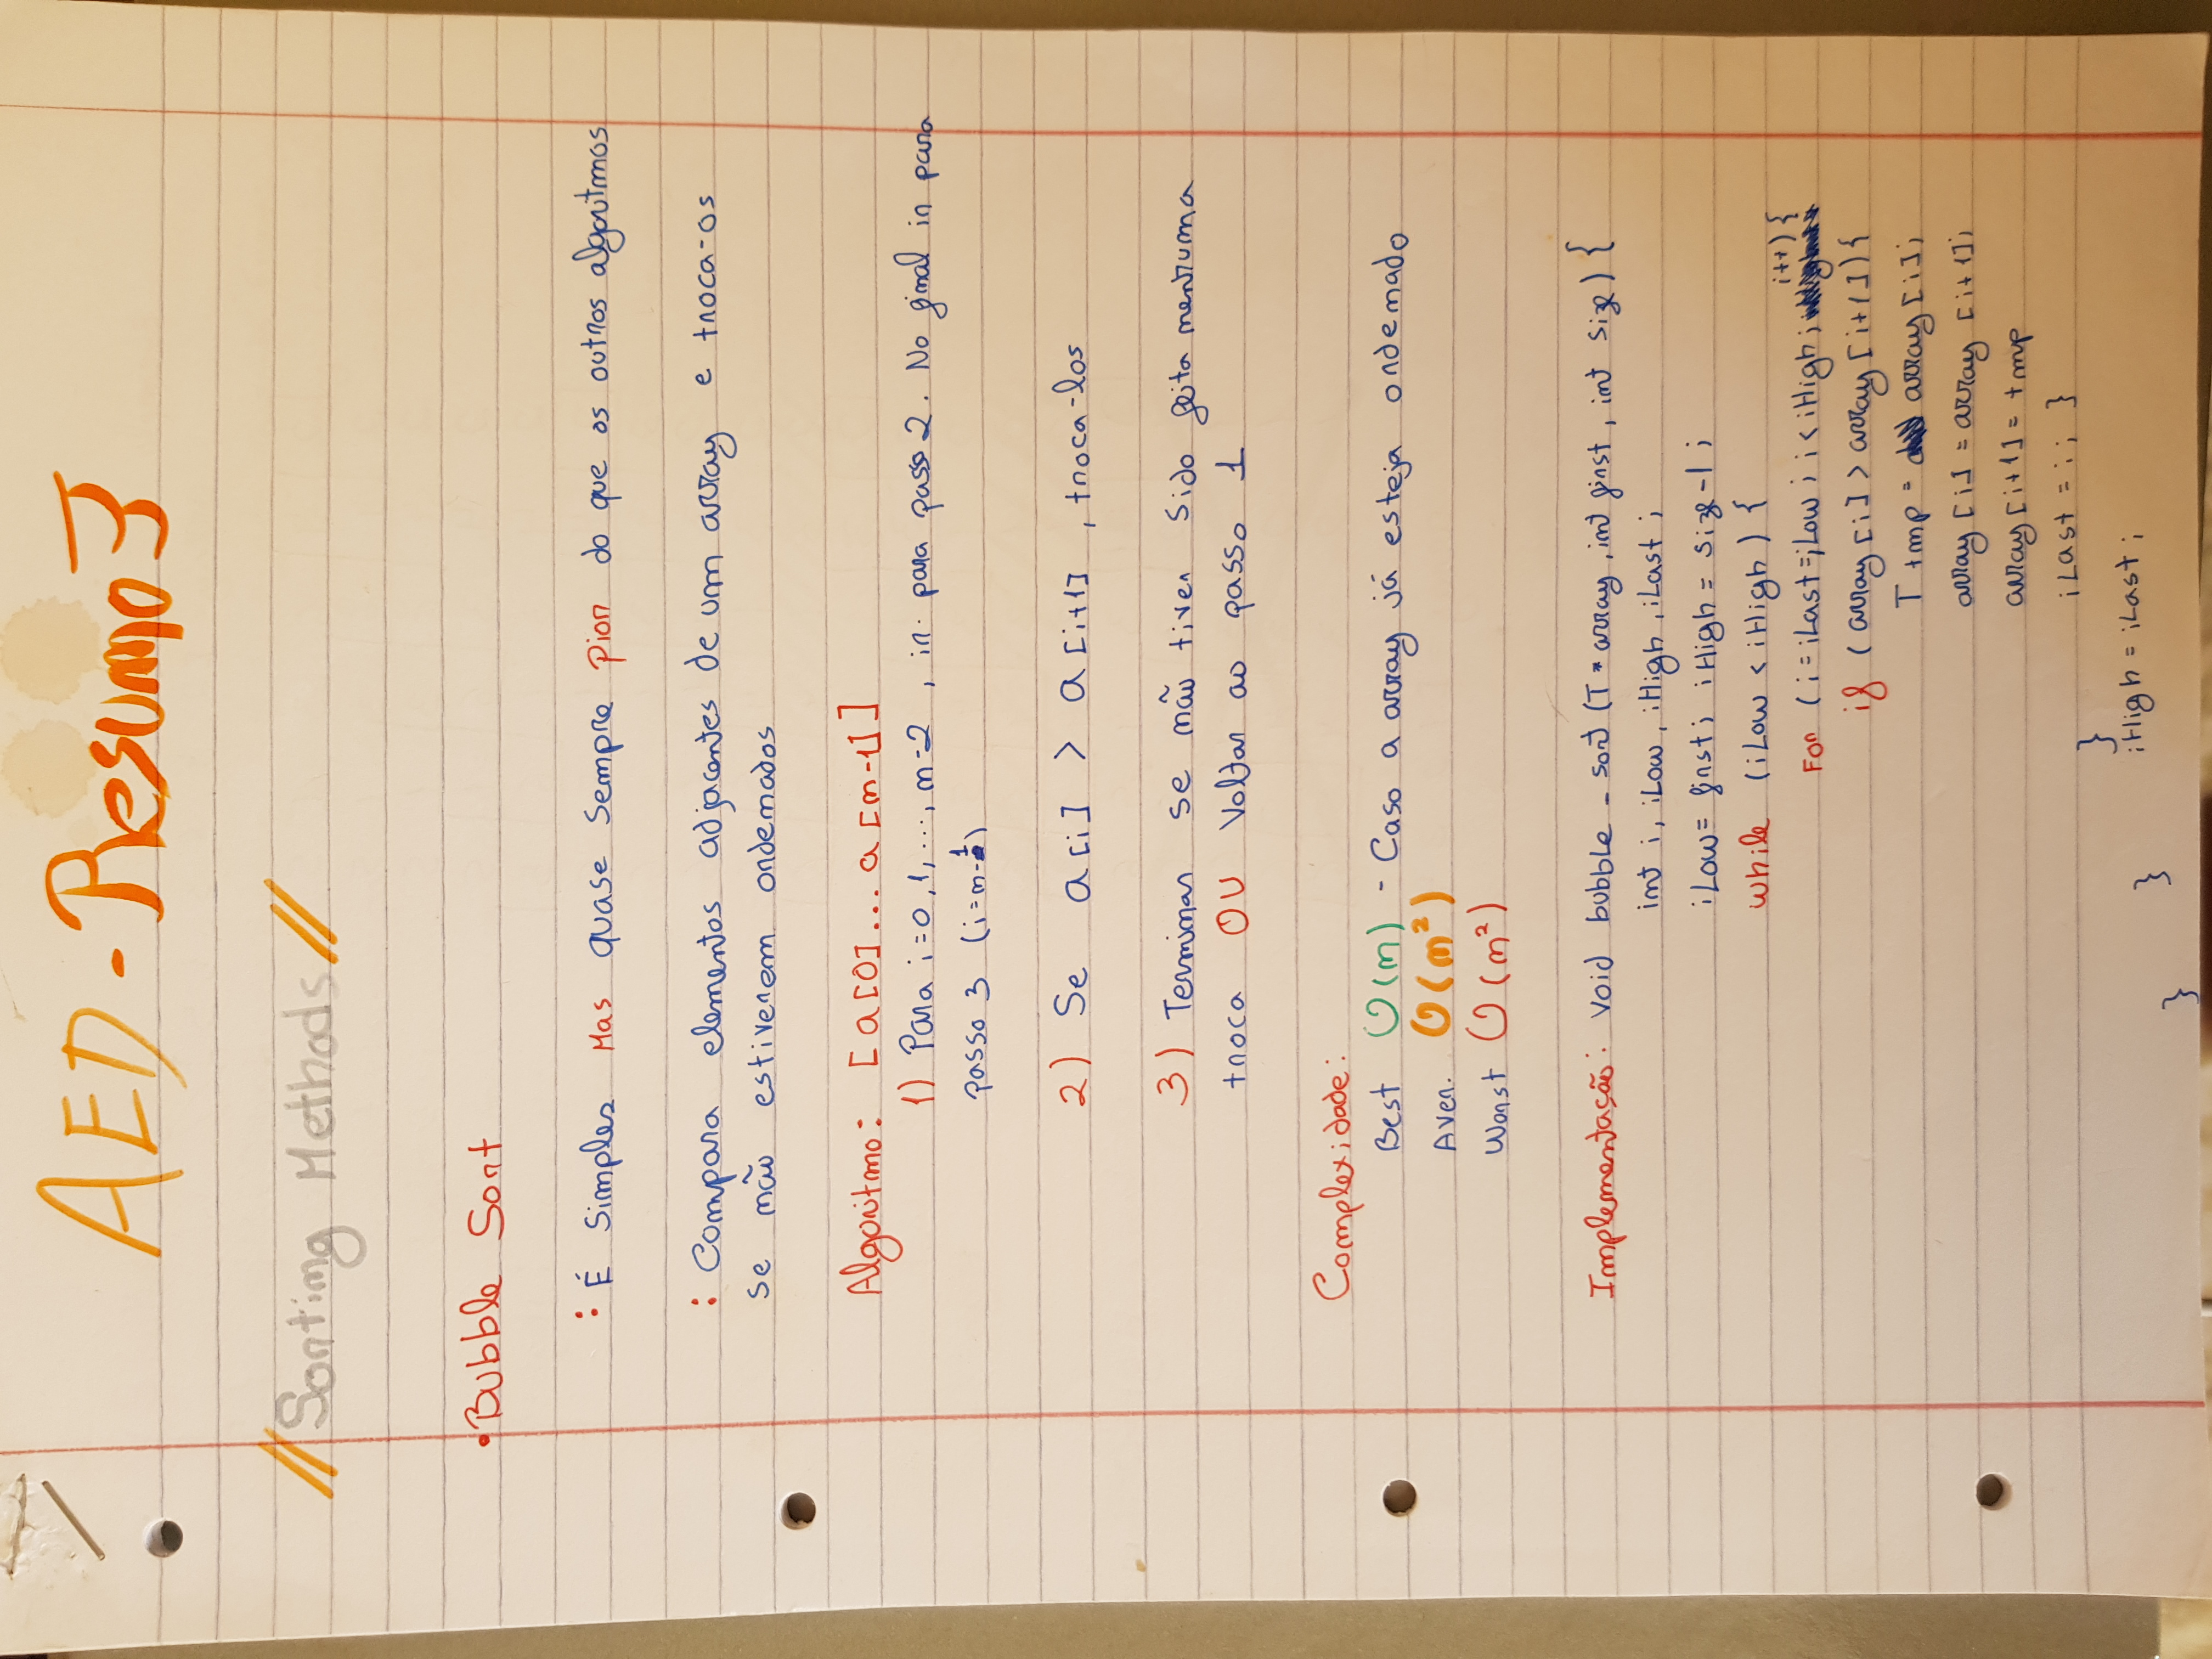 AED - Resumo 3
// Sorting Methods //
• Bubble Sort
: É simples mas quase sempre pior do que os outros algoritmos
: Compara elementos adjacentes de um array e troca-os
se não estiverem ordenados
Algoritmo: [a[0]... a[n-1]]
1) Para i=0,1,...,n-2, ir para passo 2. No final ir para
passo 3 (i=n-1)
2) Se a[i] > a[i+1], troca-los
3) Terminar se não tiver sido feita nenhuma
troca OU Voltar ao passo 1
Complexidade:
Best O(n) - Caso a array já esteja ordenado
Aver. O(n²)
Worst O(n²)
Implementação: void bubble_sort (T * array, int first, int size) {
int i, iLow, iHigh, iLast;
iLow = first; iHigh = size-1;
while (iLow < iHigh) {
For (i=iLast=iLow; i<iHigh; i++) {
if (array[i] > array[i+1]){
T tmp = array[i];
array[i] = array[i+1];
array[i+1] = tmp
iLast = i; }
}
iHigh = iLast;
}
}